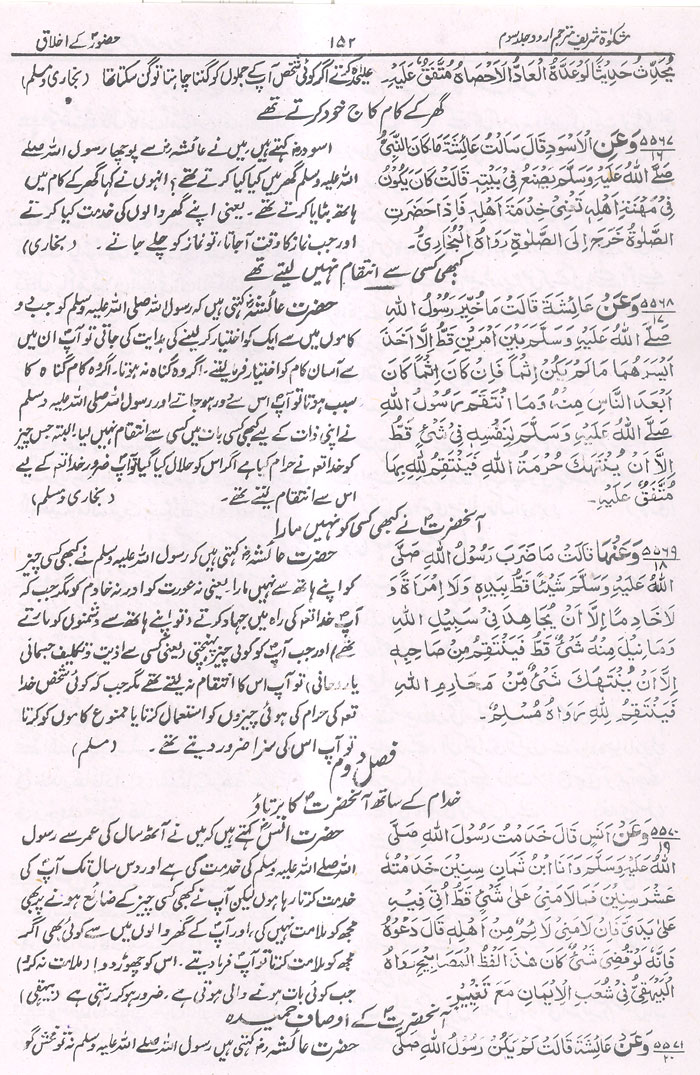 مشکوٰۃ شریف مترجم اردو جلد سوم ۱۵۲ حضورؐ کے اخلاق
يُحَدِّثُ حَدِيْثًا لَوْ عَدَّهُ الْعَادُّ لَاَحْصَاهُ مُتَّفَقٌ عَلَيْهِ
علیٰحدہ کرتے اگر کوئی شخص آپ کے جملوں کو گننا چاہتا تو گن سکتا تھا (بخاری و مسلم)
گھر کے کام کاج خود کرتے تھے
۵۵۶۷ ۱۶ وَعَنِ الْاَسْوَدِ قَالَ سَاَلْتُ عَائِشَةَ مَا كَانَ النَّبِيُّ
صَلَّى اللهُ عَلَيْهِ وَسَلَّمَ يَصْنَعُ فِيْ بَيْتِهٖ قَالَتْ كَانَ يَكُوْنُ
فِيْ مِهْنَةِ اَهْلِهٖ تَعْنِيْ خِدْمَةَ اَهْلِهٖ فَاِذَا حَضَرَتِ
الصَّلٰوةُ خَرَجَ اِلَى الصَّلٰوةِ رَوَاهُ الْبُخَارِيُّ۔
اسود رض کہتے ہیں، میں نے عائشہ رض سے پوچھا رسول اللہ صلے
اللہ علیہ وسلم گھر میں کیا کیا کرتے تھے؟ انہوں نے کہا گھر کے کام میں
ہاتھ بٹایا کرتے تھے۔ یعنی اپنے گھر والوں کی خدمت کیا کرتے
اور جب نماز کا وقت آجاتا، تو نماز کو چلے جاتے۔ (بخاری)
کبھی کسی سے انتقام نہیں لیتے تھے
۵۵۶۸ ۱۷ وَعَنْ عَائِشَةَ قَالَتْ مَا خُيِّرَ رَسُوْلُ اللهِ
صَلَّى اللهُ عَلَيْهِ وَسَلَّمَ بَيْنَ اَمْرَيْنِ قَطُّ اِلَّا اَخَذَ
اَيْسَرَهُمَا مَا لَمْ يَكُنْ اِثْمًا فَاِنْ كَانَ اِثْمًا كَانَ
اَبْعَدَ النَّاسِ مِنْهُ وَمَا انْتَقَمَ رَسُوْلُ اللهِ
صَلَّى اللهُ عَلَيْهِ وَسَلَّمَ لِنَفْسِهٖ فِيْ شَيْءٍ قَطُّ
اِلَّا اَنْ يُّنْتَهَكَ حُرْمَةُ اللهِ فَيَنْتَقِمُ لِلّٰهِ بِهَا
مُتَّفَقٌ عَلَيْهِ۔
حضرت عائشہ رض کہتی ہیں کہ رسول اللہ صلی اللہ علیہ وسلم کو جب دو
کاموں میں سے ایک کو اختیار کر لینے کی ہدایت کی جاتی تو آپؐ ان میں
سے آسان کام کو اختیار فرما لیتے۔ اگر وہ گناہ نہ ہوتا۔ اگر وہ کام گناہ کا
سبب ہوتا تو آپؐ اس سے دور ہو جاتے اور رسول اللہ صلی اللہ علیہ وسلم
نے اپنی ذات کے لیے کبھی کسی بات میں کسی سے انتقام نہیں لیا۔ البتہ جس چیز
کو خدا تعہ نے حرام کیا ہے اگر اس کو حلال کیا گیا تو آپؐ ضرور خدا تعہ کے لیے
اس سے انتقام لیتے تھے۔ (بخاری و مسلم)
آنحضرتؐ نے کبھی کسی کو نہیں مارا
۵۵۶۹ ۱۸ وَعَنْهَا قَالَتْ مَا ضَرَبَ رَسُوْلُ اللهِ صَلَّى
اللهُ عَلَيْهِ وَسَلَّمَ شَيْئًا قَطُّ بِيَدِهٖ وَلَا امْرَاَةً وَّ
لَا خَادِمًا اِلَّا اَنْ يُّجَاهِدَ فِيْ سَبِيْلِ اللهِ
وَمَا نِيْلَ مِنْهُ شَيْءٌ قَطُّ فَيَنْتَقِمُ مِنْ صَاحِبِهٖ
اِلَّا اَنْ يُّنْتَهَكَ شَيْءٌ مِّنْ مَحَارِمِ اللهِ
فَيَنْتَقِمُ لِلّٰهِ رَوَاهُ مُسْلِمٌ۔
حضرت عائشہ رض کہتی ہیں کہ رسول اللہ صلی اللہ علیہ وسلم نے کبھی کسی چیز
کو اپنے ہاتھ سے نہیں مارا، یعنی نہ عورت کو اور نہ خادم کو مگر جب کہ
آپؐ خدا تعہ کی راہ میں جہاد کرتے (تو اپنے ہاتھ سے دشمنوں کو مارتے
تھے) اور جب آپؐ کو کوئی چیز پہنچتی (یعنی کسی سے اذیت و تکلیف جسمانی
یا روحانی) تو آپؐ اس کا انتقام نہ لیتے تھے مگر جب کہ کوئی شخص خدا
تعہ کی حرام کی ہوئی چیزوں کو استعمال کرتا یا ممنوع کاموں کو کرتا
تو آپ اس کی سزا ضرور دیتے تھے۔ (مسلم)
فصل دوم
خدام کے ساتھ آنحضرتؐ کا برتاؤ
۵۵۷۰ ۱۹ وَعَنْ اَنَسٍ قَالَ خَدَمْتُ رَسُوْلَ اللهِ صَلَّى
اللهُ عَلَيْهِ وَسَلَّمَ وَاَنَا ابْنُ ثَمَانِ سِنِيْنَ خَدَمْتُهُ
عَشْرَ سِنِيْنَ فَمَا لَامَنِيْ عَلٰى شَيْءٍ قَطُّ اُتِيَ فِيْهِ
عَلٰى يَدَيَّ فَاِنْ لَامَنِيْ لَائِمٌ مِّنْ اَهْلِهٖ قَالَ دَعُوْهُ
فَاِنَّهُ لَوْ قُضِيَ شَيْءٌ كَانَ هٰذَا لَفْظُ الْمَصَابِيْحِ رَوَاهُ
الْبَيْهَقِيُّ فِيْ شُعَبِ الْاِيْمَانِ مَعَ تَغْيِيْرٍ۔
حضرت انس رض کہتے ہیں کہ میں نے آٹھ سال کی عمر سے رسول
اللہ صلے اللہ علیہ وسلم کی خدمت کی ہے اور دس سال تک آپؐ کی
خدمت کرتا رہا ہوں لیکن آپؐ نے کبھی کسی چیز کے ضائع ہونے پر بھی
مجھ کو ملامت نہیں کی، اور آپ کے گھر والوں میں سے کوئی بھی اگر
مجھ کو ملامت کرتا تو آپؐ فرما دیتے۔ اس کو چھوڑ دو! (ملامت نہ کرو)
جب کوئی بات ہونے والی ہوتی ہے۔ ضرور ہو کر رہتی ہے (بیہقی)
آنحضرتؐ کے اوصاف حمیدہ
۵۵۷۱ ۲۰ وَعَنْ عَائِشَةَ قَالَتْ لَمْ يَكُنْ رَسُوْلُ اللهِ صَلَّى
حضرت عائشہ رض کہتی ہیں رسول اللہ صلے اللہ علیہ وسلم نہ تو فحش گو